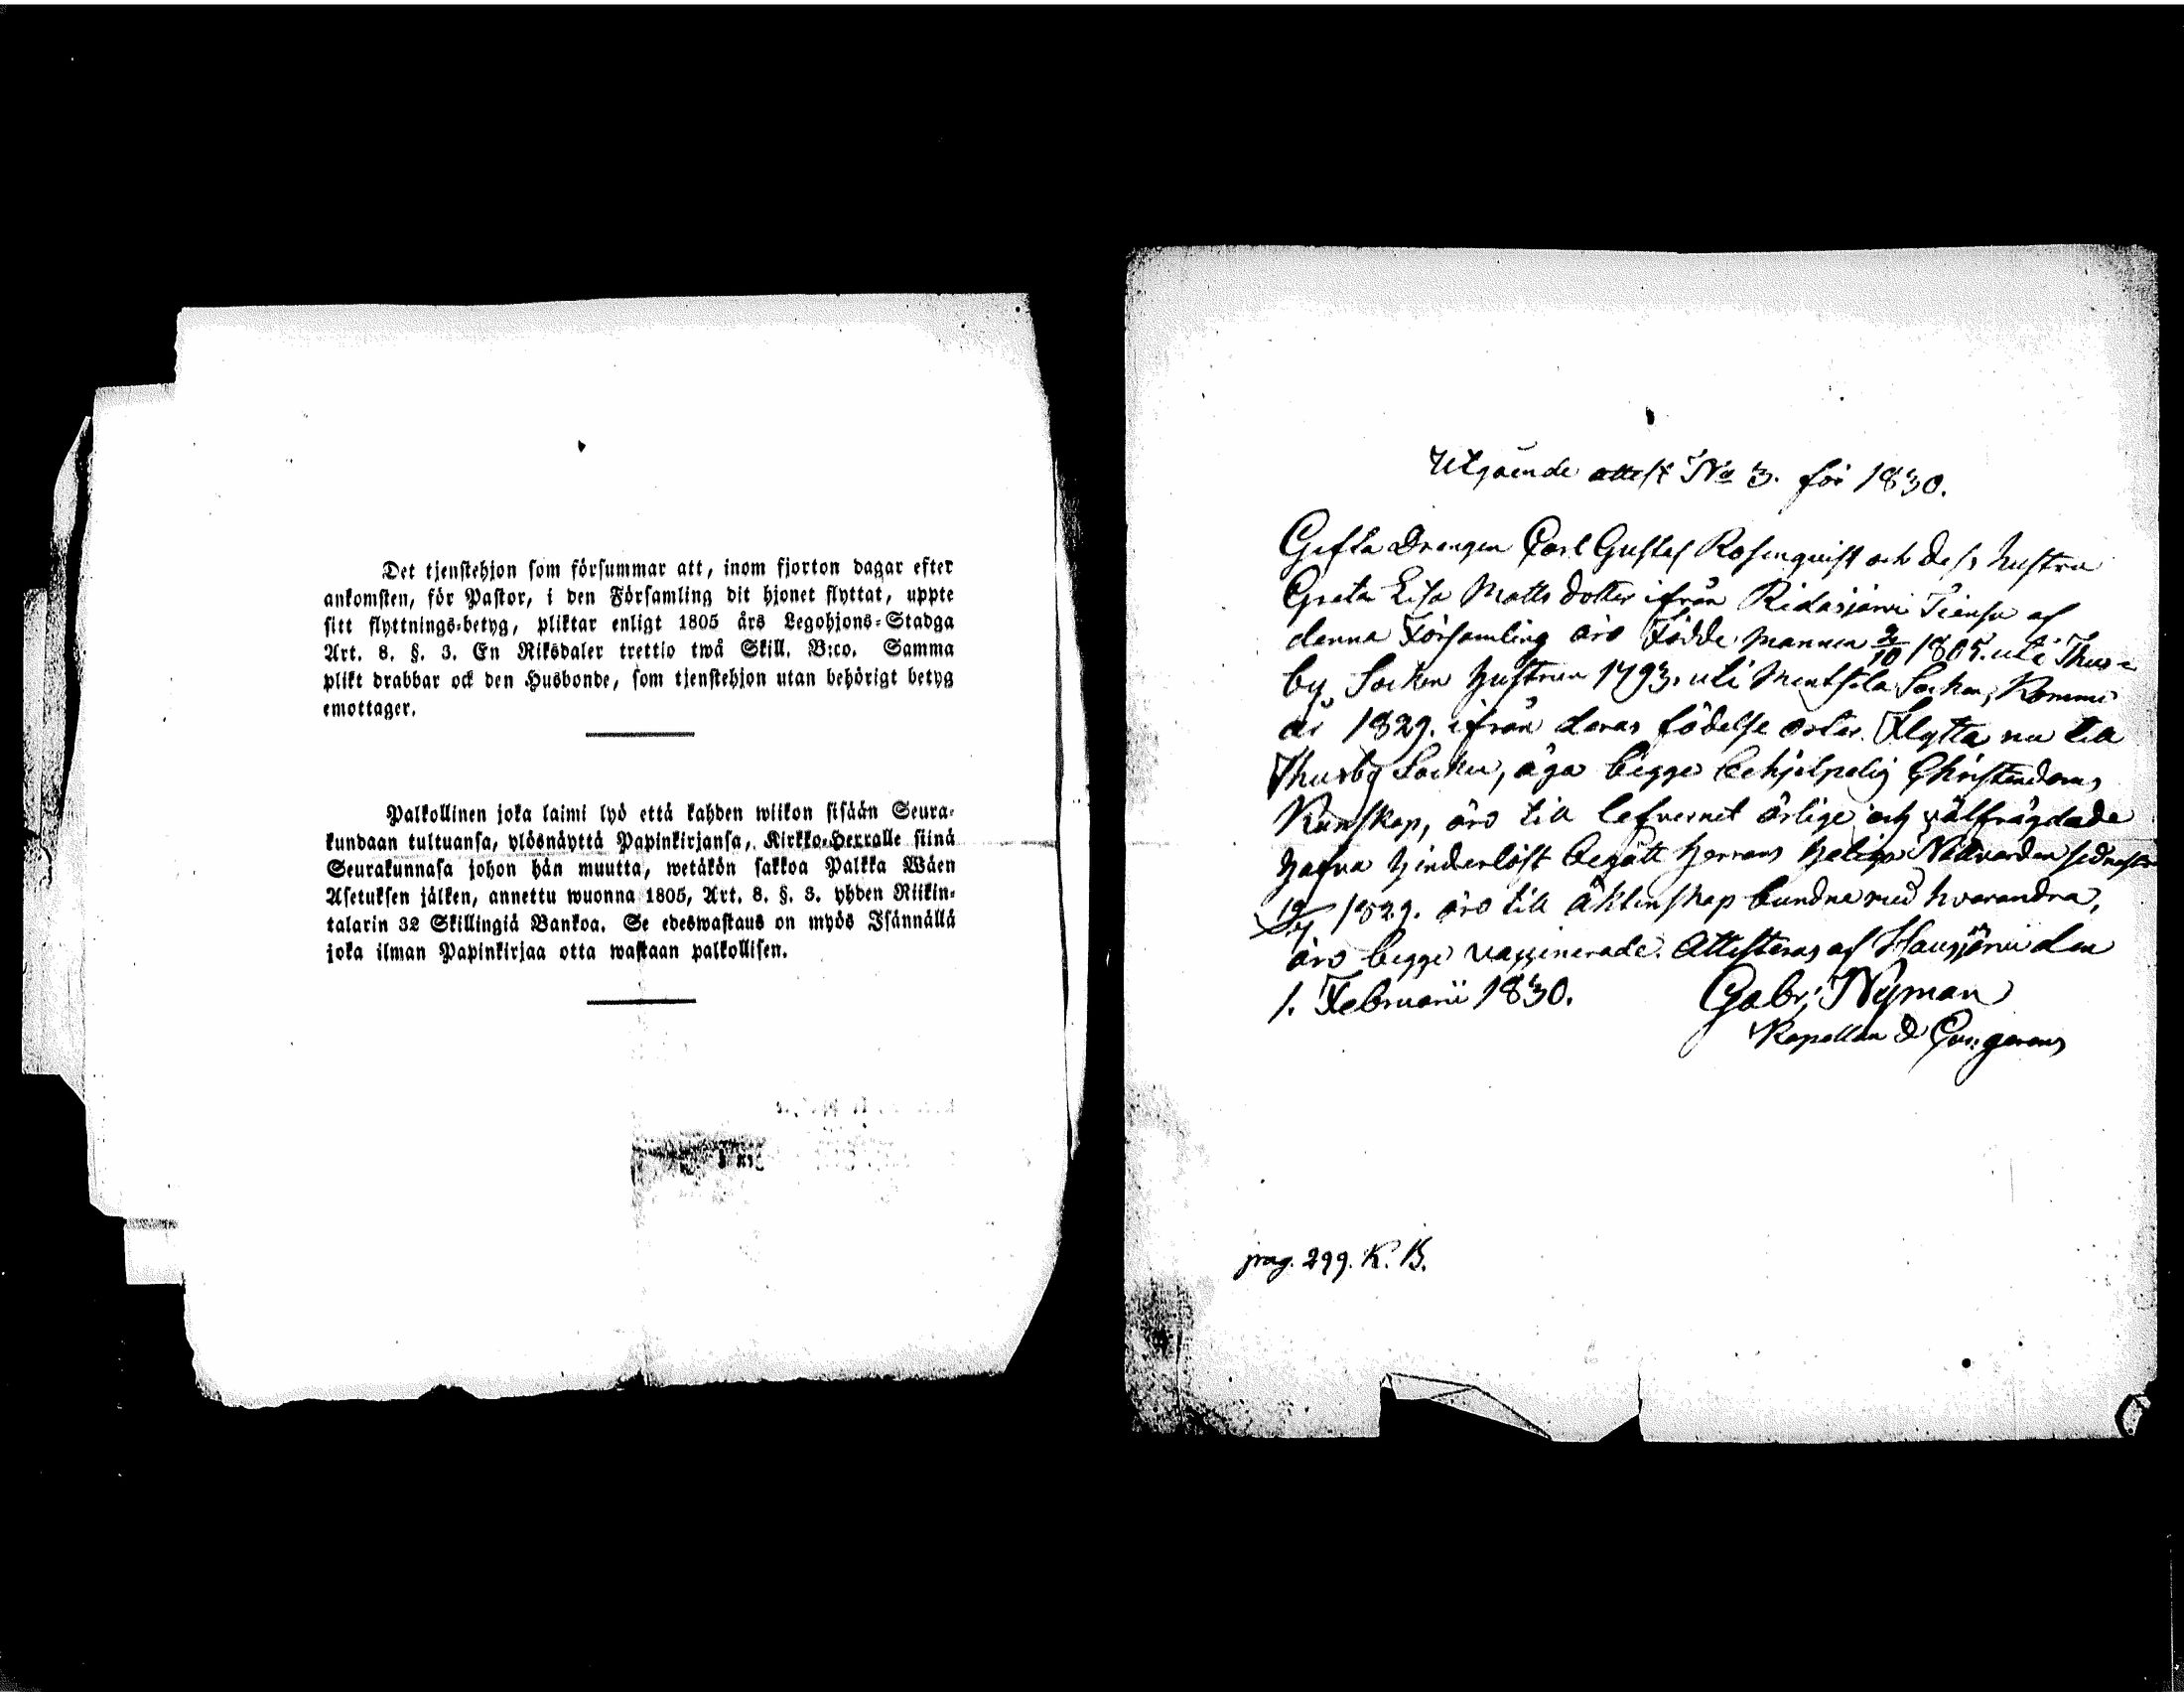 Det tjenstehjon som försummar att, inom fjorton dagar efter
ankomsten, för Pastor, i den Församling dit hjonet flyttat, uppte
sitt flyttnings-betyg, pliktar enligt 1805 års Legohjons-Stadga
Art. 8. §. 3. En Riksdaler trettio twå Skill. B:co. Samma
plikt drabbar ock den Husbonde, som tjenstehjon utan behörigt betyg
emottager.
Palkollinen joka laimi lyö että kahden wiikon sisään Seura-
kundaan tultuansa, ylösnäyttä Papinkirjansa, Kirkko-Herralle siinä
Seurakunnasa johon hän muutta, wetäkön sakkoa Palkka Wäen
Asetuksen jälken, annettu wuonna 1805, Art. 8. §. 3. yhden Riikin-
talarin 32 Skillingiä Bankoa. Se edeswastaus on myös Isännällä
joka ilman Papinkirjaa otta wastaan palkollisen.
Utgående attest No 3. för 1830.
Gifta Drengen Carl Gustaf Rosenquist och dess hustru
Greta Lisa Matts dotter ifrån Ridasjärvi af
denna Församling äro Födde, mannen 2/10 1805. uti Thus=
by Socken hustrun 1793. uti Mentsela Socken, Komme
år 1829. ifrån deras födelse orter. Flytta nu till
Thusby Socken, äga begge behjelpelig Christendoms
Kunskap, äro till lefvernet ärlige och välfrägdade
hafva hinderlöst begått Herrans Heliga Nattvarden sednast
1829. äro till äktenskap bundne med hvarandra,
äro begge vaccinerade. Attesteras af Hausjärvi den
1. Februarii 1830. Gabr: Nyman
Kapellan &
pag. 299. K. B.